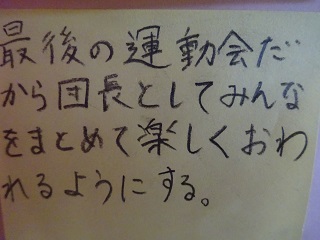 最後の運動会だ
から団長としてみんな
をまとめて楽しくおわ
れるようにする。